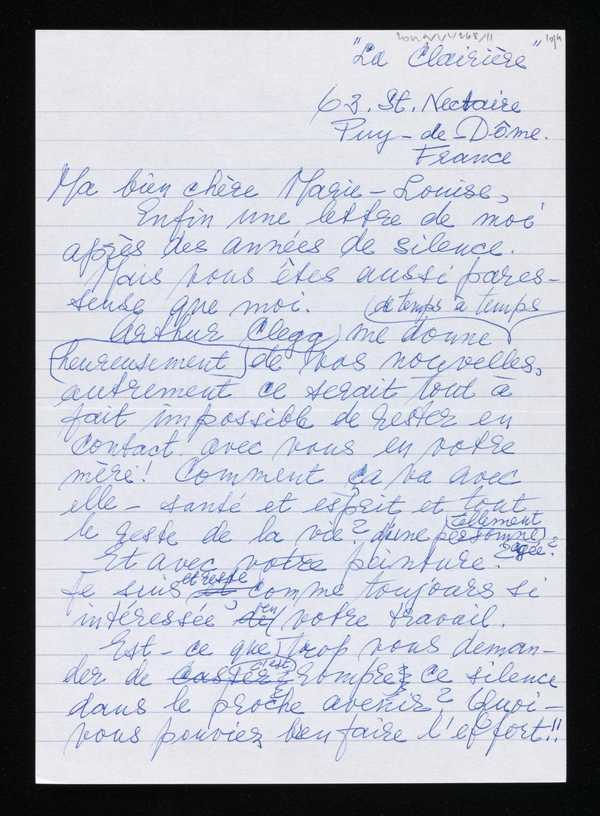 "La Clairière"
63. St. Nectaire
Puy-de-Dôme.
France
Ma bien chère Marie-Louise,
Enfin une lettre de moi
après des années de silence.
Mais vous êtes aussi pares-
seuse que moi.
de temps à temps
Arthur Clegg me donne
heureusement de vos nouvelles,
autrement ce serait tout à
fait impossible de rester en
contact avec vous en votre
mère! Comment ça va avec
elle - santé et esprit et tout
tellement
le reste de la vie? d'une personne
agée?
Et avec votre peinture?
et reste
Je suis comme toujours si
en
intéressée votre travail.
Est-ce que trop vous deman-
c'est
der de casser rompre ce silence
dans le proche avenir? Quoi-
vous pouviez bien faire l'effort!!